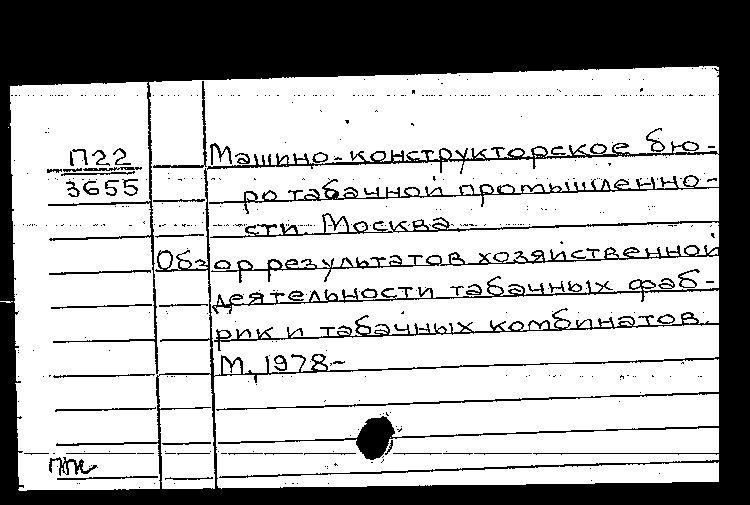 П22
3655
Машино-конструкторское бю-
ро табачной промышленно-
сти. Москва.
Обзор результатов хозяйственной
деятельности табачных фаб-
рик и табачных комбинатов.
М., 1978-